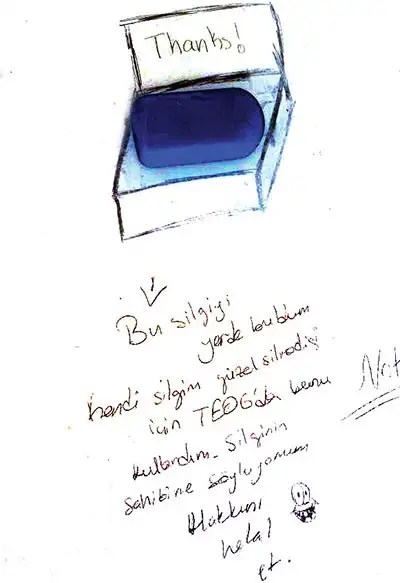 Thanks!
Bu silgiyi
yerde buldum
kendi silgim güzel silmediği
için TEOG'da bunu
kullandım. Silginin
sahibine söylüyorum
Hakkını
helal
et.